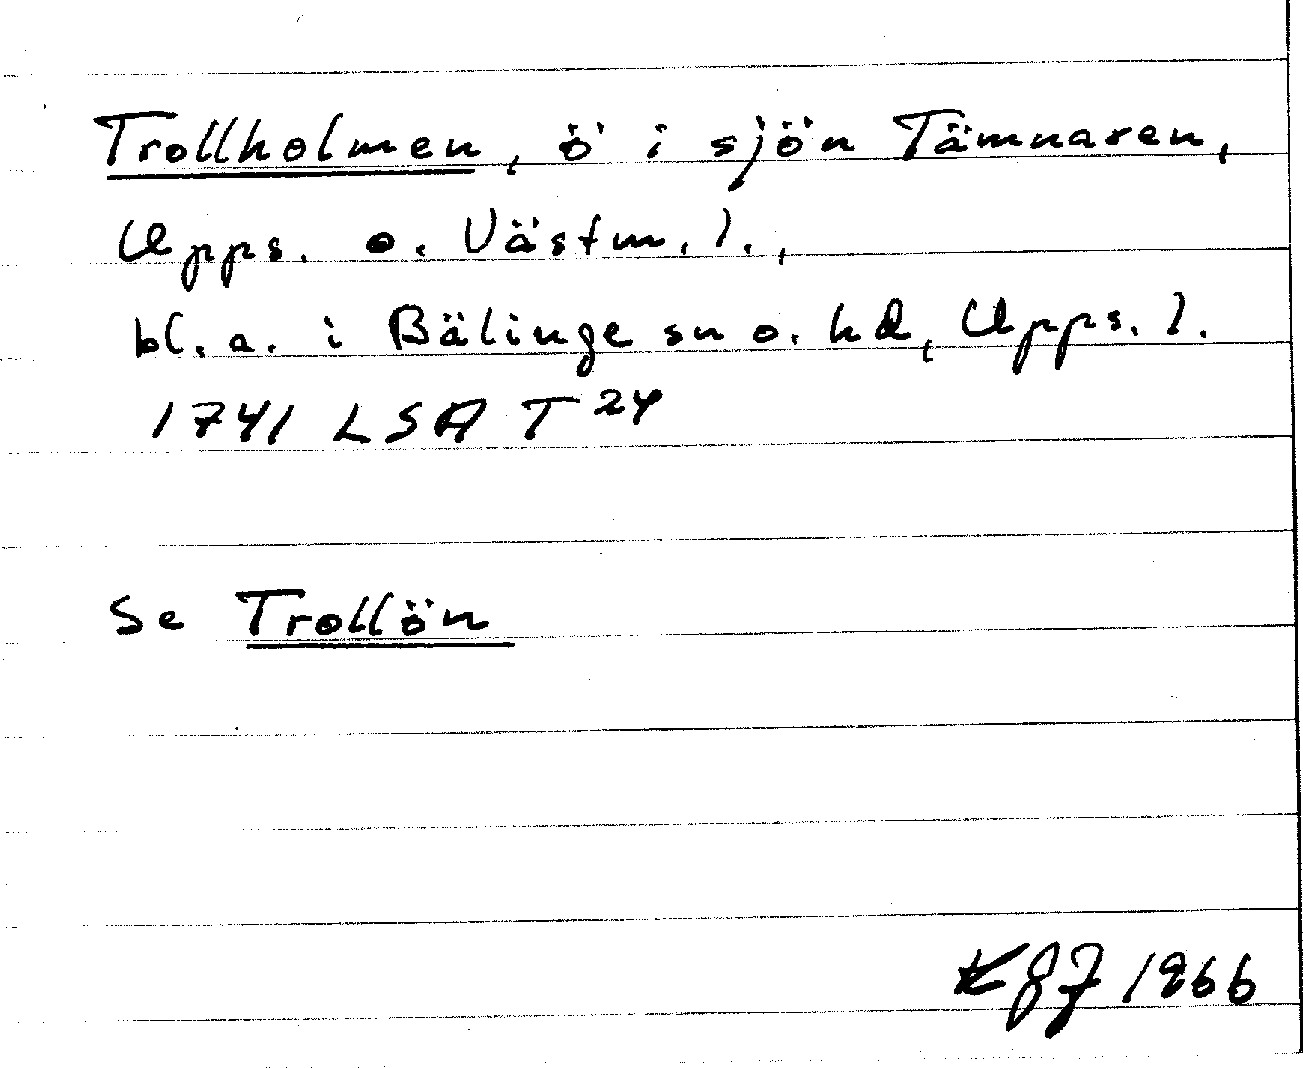 Trollholmen, ö i sjön Tämnaren,
Upps. o. Västm. l.,
bl. a. i Bälinge sn o. hd, Upps. l.
1741 LSA T 24
Se Trollön
KGJ 1966